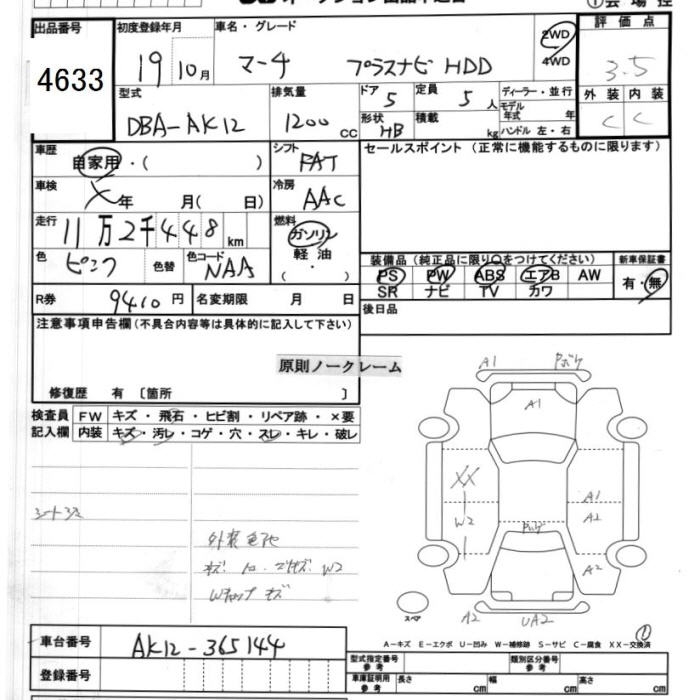 出品番号 初度登録年月 車名・グレード 評価点
4633 19 10月 マーチ プラスナビ HDD 2WD 4WD 3.5
型式 排気量 ドア 5 定員 5人 ディーラー・並行 外装 内装
DBA-AK12 1200cc 形状 HB 積載 kg モデル年式 年 C C
ハンドル 左・右
車歴 自家用・( ) シフト FAT セールスポイント (正常に機能するものに限ります)
車検 メ年 月( 日) 冷房 AAC
走行 11万2千448km 燃料 ガソリン
色 ピンク 色替 色コード NAA 軽油 ( ・ ) 装備品 (純正品に限り○をつけてください) 新車保証書
PS PW ABS エアB AW 有・無
R券 9410円 名変期限 月 日 SR ナビ TV カワ
後日品
注意事項申告欄(不具合内容等は具体的に記入して下さい)
原則ノークレーム
修復歴 有 〔箇所 〕
検査員 FW キズ・飛石・ヒビ割・リペア跡・×要
記入欄 内装 キズ・汚レ・コゲ・穴・スレ・キレ・破レ
A1
A1
XX
A1
W2 A2
A2
W2
スペア A2 UA2
A-キズ E-エクボ U-凹み W-補修跡 S-サビ C-腐食 XX-交換済
車台番号 AK12-365144
型式指定番号 参考 類別区分番号 参考
登録番号 車庫証明用 参考 長さ cm 幅 cm 高さ cm